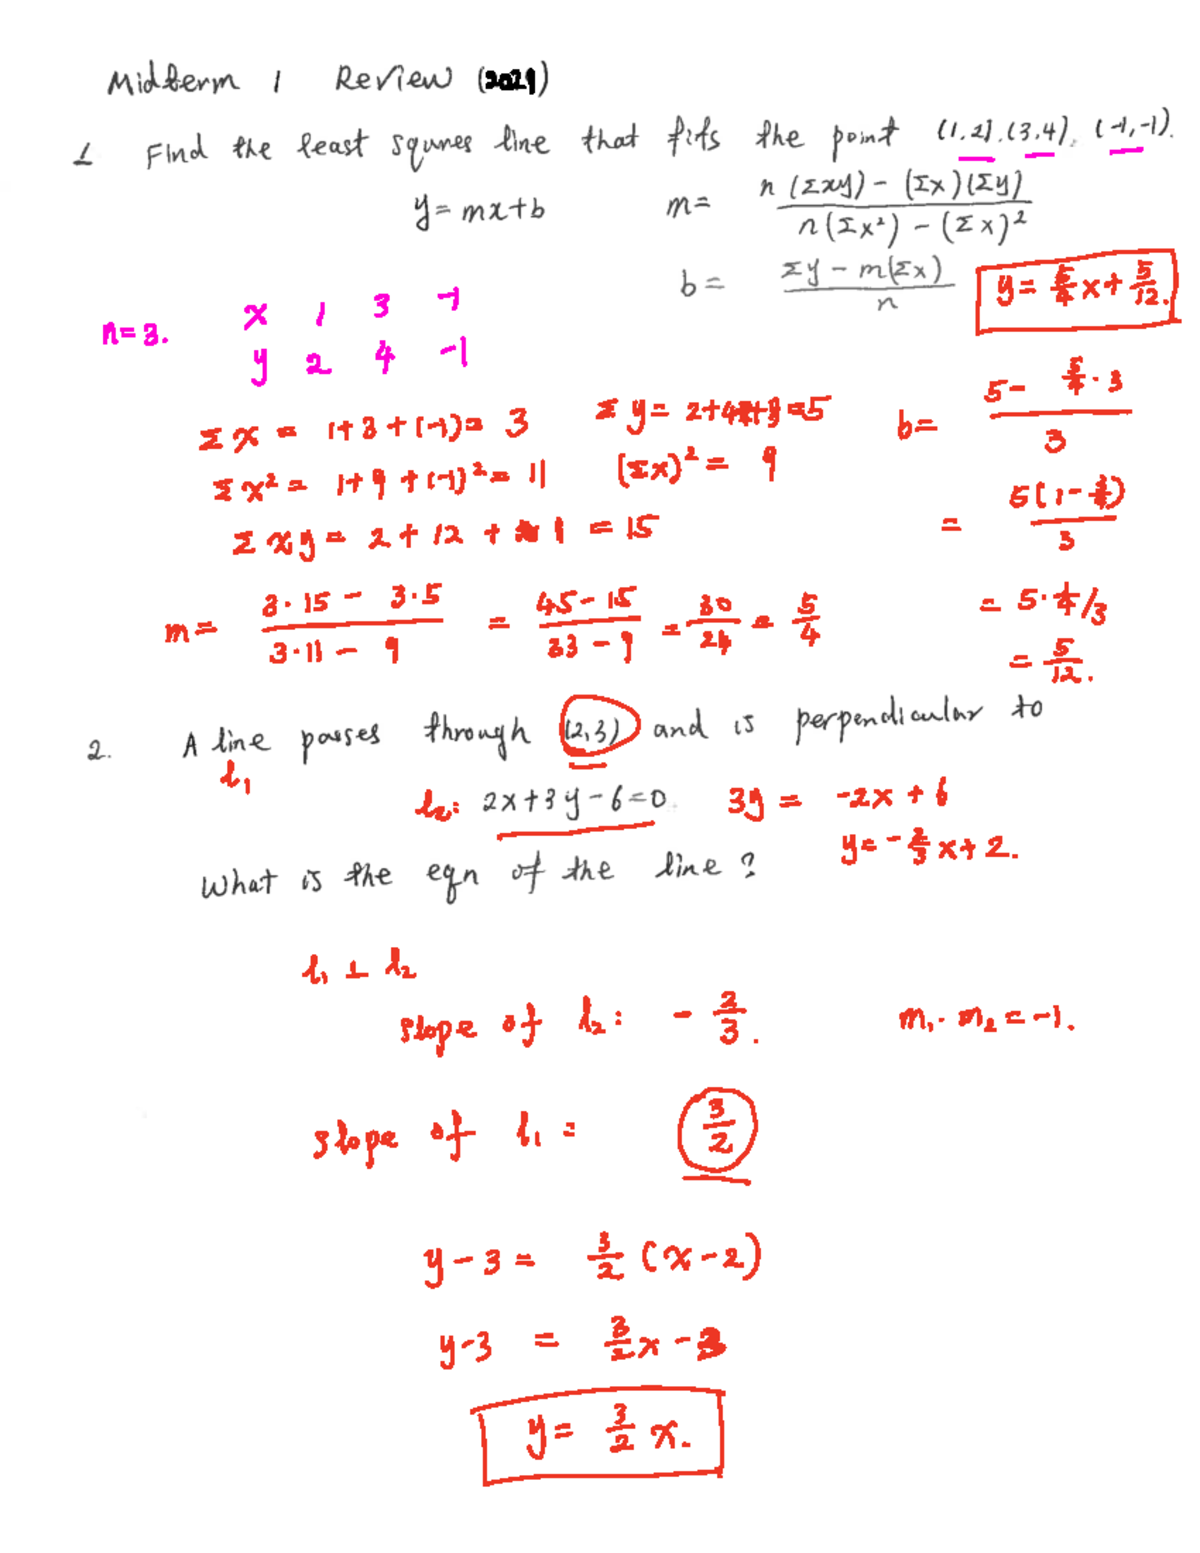 Midterm 1 Review (2021)
1 Find the least squares line that fits the point (1,2), (3,4), (-1,-1).
y = mx+b m = n(Σxy) - (Σx)(Σy) / n(Σx²) - (Σx)²
b = Σy - m(Σx) / n
y = 5/4 x + 5/12.
n=3.
x 1 3 -1
y 2 4 -1
Σx = 1+3+(-1) = 3
Σy = 2+4 = 5
Σx² = 1+9+(-1)² = 11
(Σx)² = 9
Σxy = 2+12+1 = 15
m = 3·15 - 3·5 / 3·11 - 9 = 45-15 / 33-9 = 30/24 = 5/4
b = 5 - 5/4·3 / 3
= 5(1-3/4) / 3
= 5·1/4/3
= 5/12.
2. A line passes through (2,3) and is perpendicular to
l1
l2: 2x+3y-6=0.
3y = -2x+6
y = -2/3 x + 2.
What is the eqn of the line?
l1 ⊥ l2
slope of l2: - 2/3.
m1·m2 = -1.
slope of l1 = 3/2
y-3 = 3/2 (x-2)
y-3 = 3/2 x - 3
y = 3/2 x.